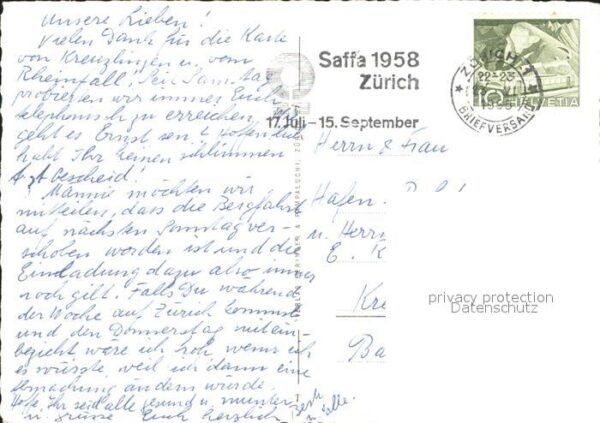 Unsere Lieben!
Vielen Dank für die Karte
von Kreuzlingen u. vom
Rheinfall! Seit Samstag
probieren wir immer Euch
telephonisch zu erreichen. Wie
geht es Ernst, sen.? Hoffentlich
habt Ihr keinen schlimmen
Arztbescheid!
Männie möchten wir
mitteilen, dass die Bergfahrt
auf nächsten Sonntag ver-
schoben worden ist und die
Einladung dazu also immer
noch gilt. Falls Du während
der Woche auf Zürich kommst
und den Donnerstag mitein-
beziehst wäre ich froh wenn ich
es wüsste, weil ich dann eine
Abmachung ändern würde.
Hoffe, Ihr seid alle gesund u. munter
u. grüsse Euch herzlich
Saffa 1958
Zürich
17. Juli - 15. September
ZÜRICH 1
22-23
BRIEFVERSAND
HELVETIA
Herrn & Frau
Hafen
u. Herrn
E. K
Kre
Ba
privacy protection
Datenschutz